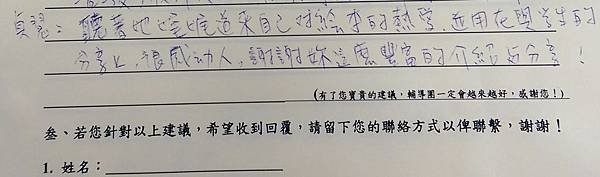 貞瑿：聽著她娓娓道來自己對繪本的熱愛，並用在與學生的
分享上，很感動人，謝謝妳這麼豐富的介紹與分享！
(有了您寶貴的建議，輔導團一定會越來越好，感謝您！)
叁、若您針對以上建議，希望收到回覆，請留下您的聯絡方式以俾聯繫，謝謝！
1. 姓名：